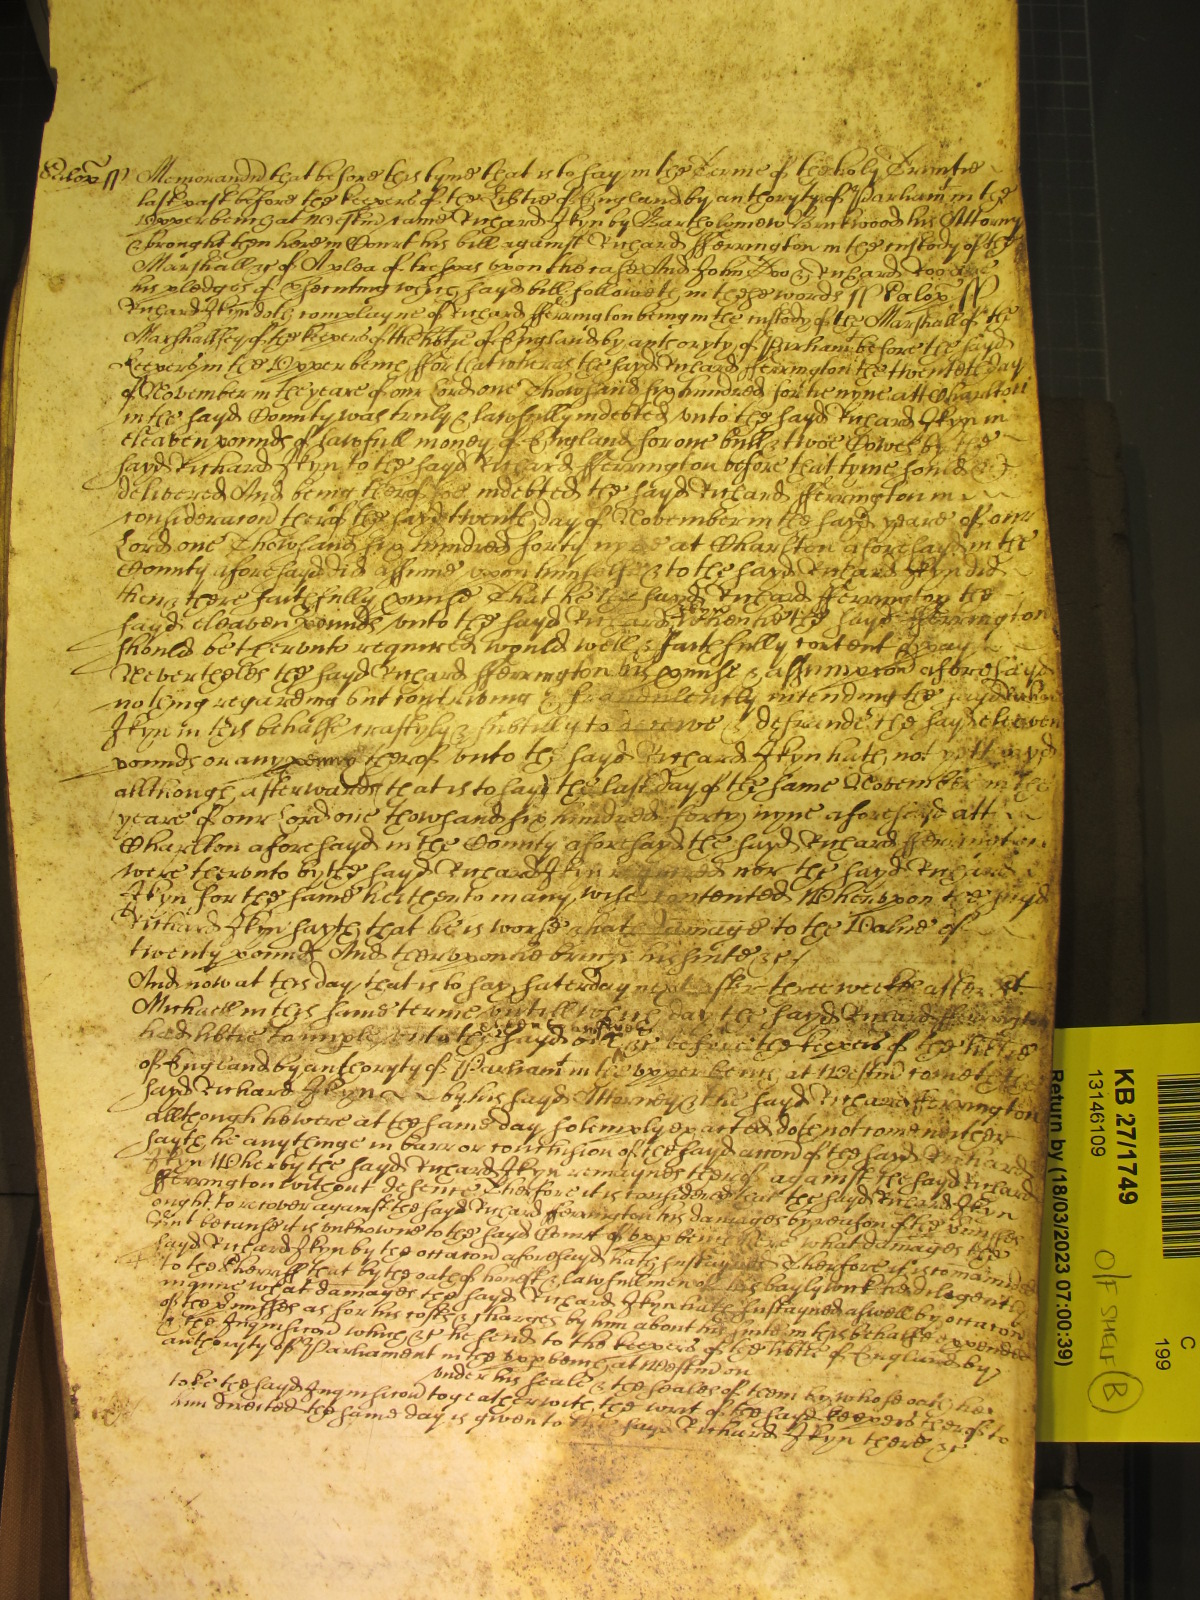 Salop ss Memorand that before this tyme that is to say in the Terme of the holy Trinitie
last past before the keepers of the Libtie of England by authoryty of Parliam in the
upper bench at Westm came Richard Ikyn by Bartholomew his Attorny
& brought then here in Court his bill against Richard Fferrington in the custody of the
Marshall &c of A plea of trespas upon the case And John Doo & Richard Roo are
his pledges of which sayd bill followeth in these words ss Salop ss
Richard Ikyn doth complayne of Richard fferrington being in the custody of the Marshall of the
Marshallsey of the keepers of the libtie of England by authoryty of Parliam before the sayd
keepers in the Upper bench ffor that wheras the sayd Richard fferrington the twenteth day
of November in the yeare of our Lord one Thowsand six hundred fortie nyne att Charlton
in the sayd County was truly & lawfully indebted unto the sayd Richard Ikyn in
eleaven pounds of lawfull money of England for one bull & twoe Cowes by the
sayd Richard Ikyn to the sayd Richard fferrington before that tyme sould &
delivered And being therof soe indebted the sayd Richard fferrington in
consideracon therof the sayd twenty day of November in the sayd yeare of our
Lord one Thowsand six hundred forty nyne at Charlton aforesayd in the
County aforesayd did assume upon himselfe & to the sayd Richard Ikyn did
then & there faithfully promise That he the sayd Richard fferrington the
sayd eleaven pounds unto the sayd Richard Ikyn when he the sayd fferrington
should be therunto required would well & faithfully content & pay
Neverthelesse the sayd Richard fferrington his promise & assumpcon aforesayd
nothing regarding but contriving & fraudulently intending the sayd Richard
Ikyn in this behalfe craftyly & subtilly to deceive & defraude the sayd eleaven
pounds or any penny therof unto the sayd Richard Ikyn hath not yett payd
allthough afterwards that is to say the last day of the same November in the
yeare of our Lord one thowsand six hundred forty nyne aforesayd att
Charlton aforesayd in the County aforesayd the sayd Richard fferrington
were therunto by the sayd Richard Ikyn required nor the sayd Richard
Ikyn for the same hitherto in any wise contented Wherupon the sayd
Richard Ikyn sayth that he is worse & hath damage to the Value of
twenty pounds And therupon he brings his suite &c
And now at this day that is to say Saterday next after three weekes after St
Michaell in this same terme untill which day the sayd Richard fferrington
had libtie to imple unto the sayd bill & then to answer &c before the keepers of the libtie
of England by authoryty of Parliamt in the upper bench at Westm cometh the
sayd Richard Ikyn by his sayd Attorney & the sayd Richard fferrington
allthough he were at the same day solemply exacted doth not come neither
sayth he any thinge in barr or conclusion of the sayd accon of the sayd Richard
Ikyn Wherby the sayd Richard Ikyn remaynes therof against the sayd Richard
fferrington without defence Therfore it is considered that the sayd Richard Ikyn
ought to recover against the sayd Richard fferrington his damages by reason of the premisses
But because it is unknowne to the sayd Court of upp bench here what damages the
sayd Richard Ikyn by the occacon aforesayd hath sustayned Therfore it is comanded
to the Sherriff that by the oath of honest & lawfull men of his baylywick he diligently
inquire what damages the sayd Richard Ikyn hath sustayned aswell by occacon
of the premisses as for his costs & charges by him about his suite in this behalfe expended
& the Inquisicon which &c he send to the keepers of the libtie of England by
authoryty of Parliament in the upp bench at Westm on
under his seale & the seales of them by whose oath he
take the sayd Inquisicon togeather with the writ of the sayd keepers therof to
him directed the same day is given to the sayd Richard Ikyn there &c
KB 27/1749
13146109
Return by (18/03/2023 07:00:39)
C
199
O/F SHELF B